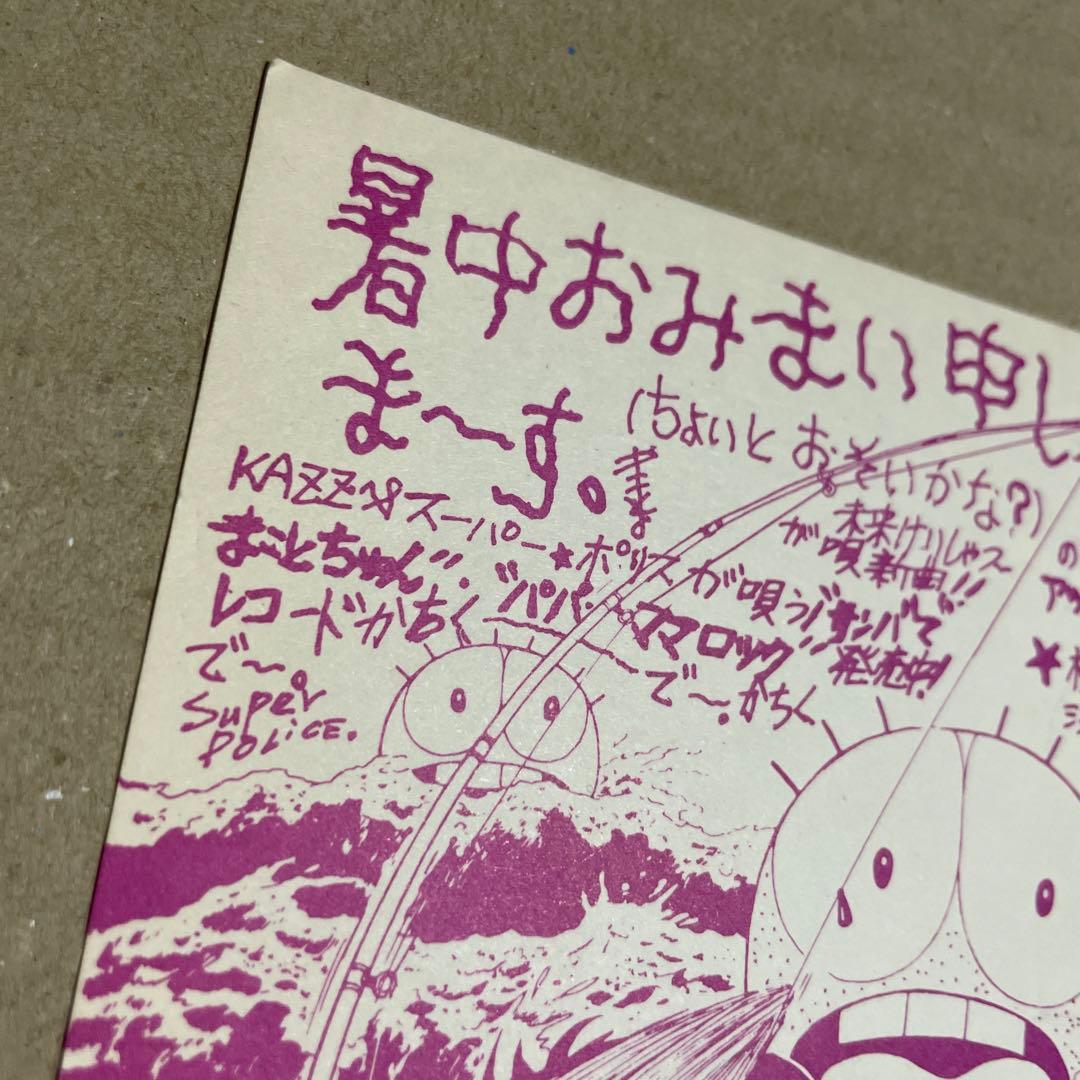 暑中おみまい申し
ま〜す。
(ちょいとおそいかな?)
KAZZ&スーパー★ポリス が唄う
まことちゃん
レコードかちく
で〜
Super
POLICE.
"パパ・ママロック"
で〜。かちく
未来
が唄
新曲!!
サンバ
発売中!
の
★